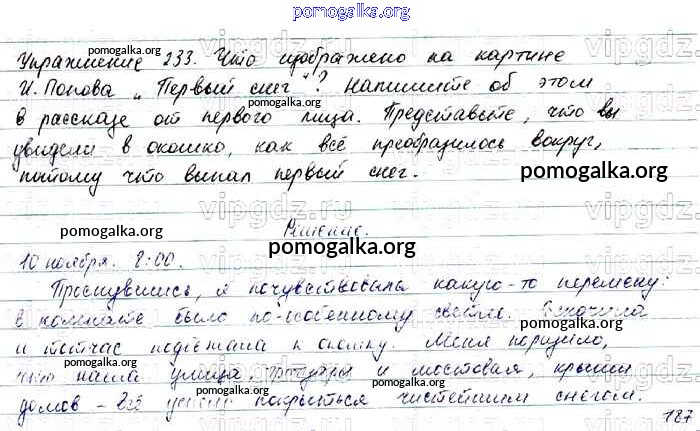 pomogalka.org
Упражнение 233. Что изображено на картине
И. Попова „Первый снег"? Напишите об этом
в рассказе от первого лица. Представьте, что вы
увидели в окошко, как всё преобразилось вокруг,
потому что выпал первый снег.
pomogalka.org
Решение.
10 ноября. 8:00.
Проснувшись, я почувствовала какую-то перемену:
в комнате было по-особенному светло. Вскочила
и тотчас подбежала к окошку. Меня поразило,
что наша улица, тротуары и мостовая, крыши
домов - всё успело покрыться чистейшим снегом.
187